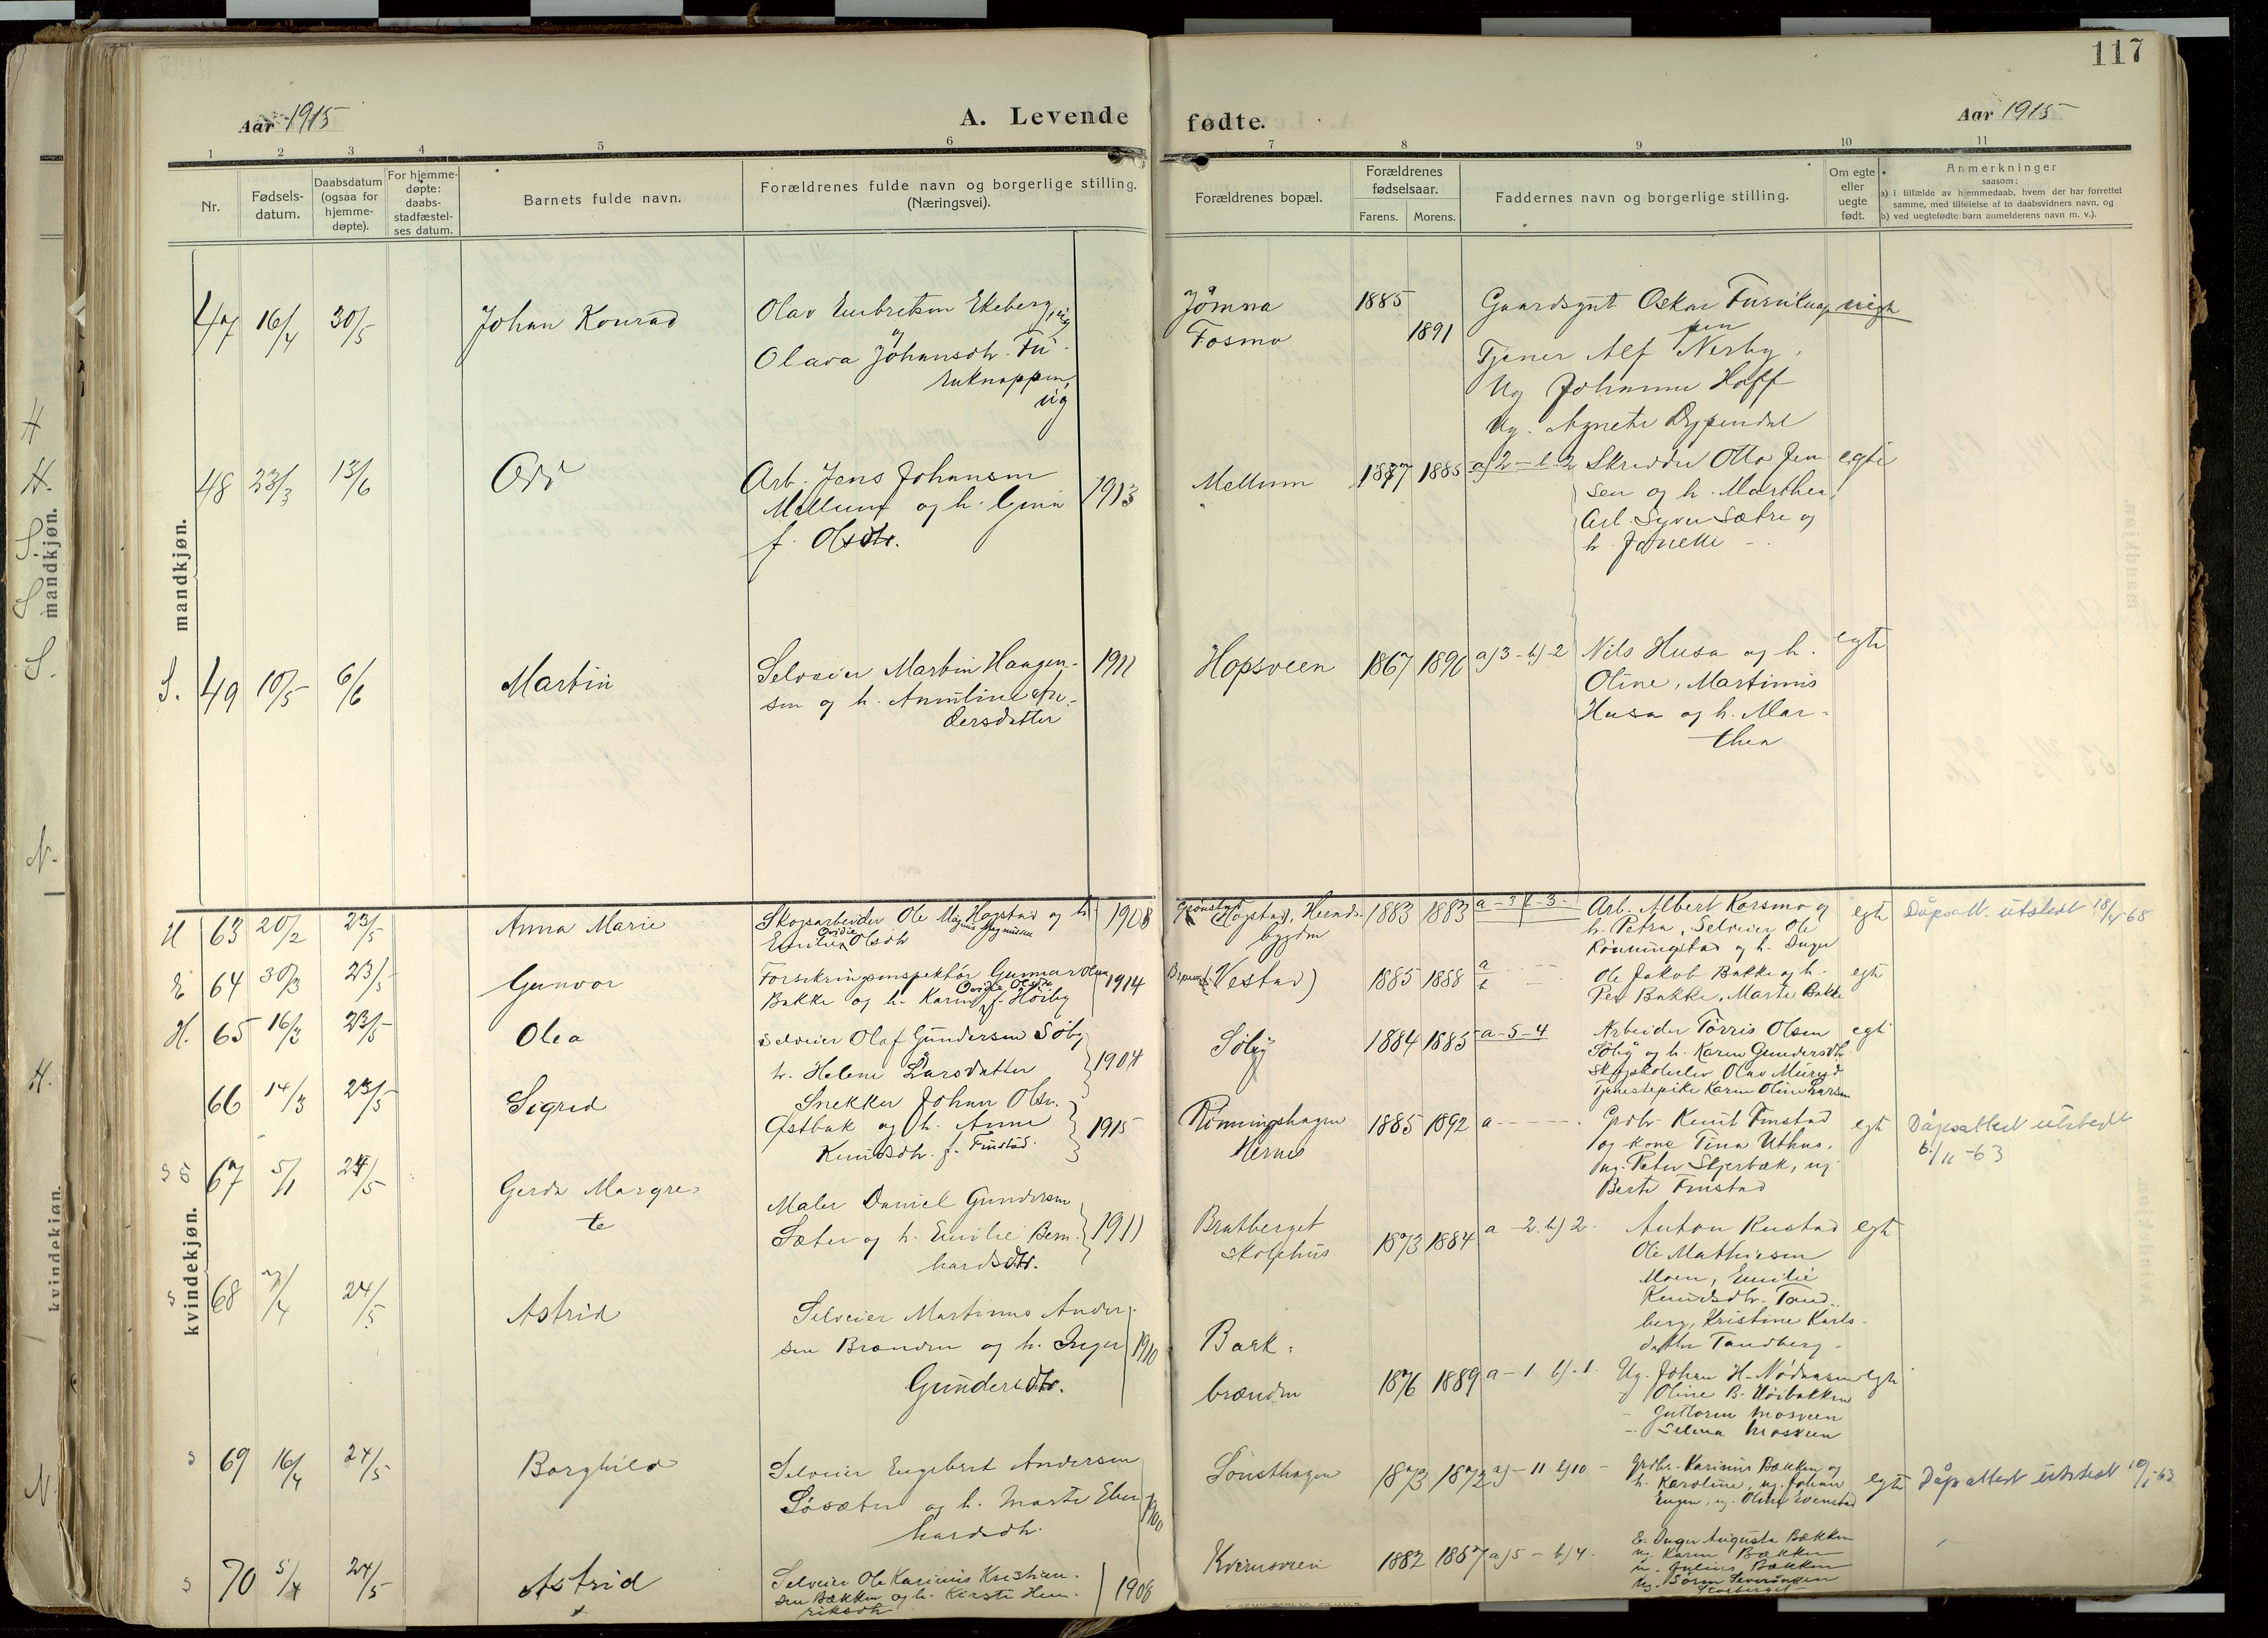 117
Aar 1915
A. Levende
fødte.
Aar 1915
1 2 3 4 5 6
7 8 9 10 11
Nr.
Fødsels-
datum.
Daabsdatum
(ogsaa for
hjemme-
døpte).
For hjemme-
døpte:
daabs-
stadfæstel-
ses datum.
Barnets fulde navn.
Forældrenes fulde navn og borgerlige stilling.
(Næringsvei).
Forældrenes bopæl.
Forældrenes
fødselsaar.
Farens. Morens.
Faddernes navn og borgerlige stilling.
Om egte
eller
uegte
født.
Anmerkninger
saasom:
a) i tilfælde av hjemmedaab, hvem der har forrettet
samme, med tilføielse af to daabsvidners navn, og
b) ved uegtefødte barn anmelderens navn m. v.).
mandkjøn.
47 16/4 30/5 Johan Konrad
Olav Embretsen Ekeberg, ug
og
Olava Johansdtr. Fu-
ruknappen,
ug
Jömna 1885
Fosmo 1891
Gaardsgut Oskar Furuknap-
pen
Tjener Alf Nerby,
Ug Johanne Hoff
Ug. Agnete Dypendal
uegte
48 23/3 13/6 Odd
Arb. Jens Johansen
Mellum og h.
f. Olsdtr.
1913
Mellum 1887 1885 a) 2 - b. 2
Skredder Otto Jen
sen og h. Marthea,
Arb. Syver Sætre og
h. Janette -
egte
S. 49 10/5 6/6 Martin
Selveier Martin Haagen-
sen og h. Annline An-
dersdatter
1911
Hopsveen 1867 1890 a) 3 - b) - 2
Nils Husa og h.
Oline, Martinius
Husa og h. Mar-
thea
egte
kvindekjøn.
H 63 20/2 23/5 Anna Marie
Skogsarbeider Ole Mag Hagstad og h
Magnus Magnussen
Emilie Ovidie Olsdtr
1908
Grönstad
(Hagstad), Hernes-
bygden
1883 1883
Arb. Albert Karsmo og
h. Petra, Selveier Ole
Rönningstad og h. Inger
egte
Dåpsatt. utstedt 18/4-68
64 30/3 23/5 Gunvor
Forsikringsinspektör Gunnar Olsen
Bakke og h. Karen Ovidie Olsdtr f. Höiby
1914
(Vestad) 1885 1888 a
b
Ole Jakob Bakke og h.
Per Bakke, Marte Bakke
egte
H. 65 16/3 23/5 Olea
Selveier Olaf Gundersen Söby
h. Helene Larsdatter
1904
Söby 1884 1885 a - 5 - 4
Arbeider Törris Olsen
Söby og h. Karen Gundersdtr
Skogskoleelev Olav
Tjenestepike Karen Oline Larsen
egte
66 14/3 23/5 Sigrid
Snekker Johan Olsen
Østbak og h. Anne
Knudsdtr. f. Finstad
1915
Rönningshagen
Hernes
1885 1892 a - - - -
Grdbr Knut Finstad
og kone Tina Uthus,
ug. Peter Skjerbæk, ug
Berte Finstad
egte
Dåpsattest utstedt
6/11 -63
S 67 5/1 24/5 Gerda Margre-
te
Maler Daniel Gundersen
Sæter og h. Emilie Bern-
hardsdtr.
1911
Bratberget
skolehus
1873 1884 a - 2. b) 2
Anton Rustad
Ole Mathiesen
Moen, Emilie
Knudsdtr. Tand-
berg, Kristine Karls-
datter Tandberg
egte
S 68 7/4 24/5 Astrid
Selveier Martinus Ander-
sen Brænden og h. Inger
Gundersdtr.
1910
Bark-
brænden
1876 1889 a - 1 b) - 1
Ug. Johan H. Nödaasen
Oline B. Höibakken
- Guttorm Mosveen
- Selma Mosveen
egte
S 69 16/4 24/5 Borghild
Selveier Engebert Andersen
Söæter og h. Marte Eber
hardsdtr.
1900
Sönsthagen 1873 1872 a) - 11 b) 10 -
Grdbr. Karinius Bækken og
h. Karoline, ug. Johan
Engen, ug. Oline Evenstad
egte
Dåpsattest utstedt 10/1-63
S 70 5/4 24/5 Astrid
Selveier Ole Karinius Kristian-
sen Bækken og h. Kersti Hen-
riksdtr
1906
Kværnveen 1882 1867 a) 5 - b) 4.
E. Inger Augusta Bækken
u. Karen Bækken
u. Julius Bækken
Ug. Sören Severinsen